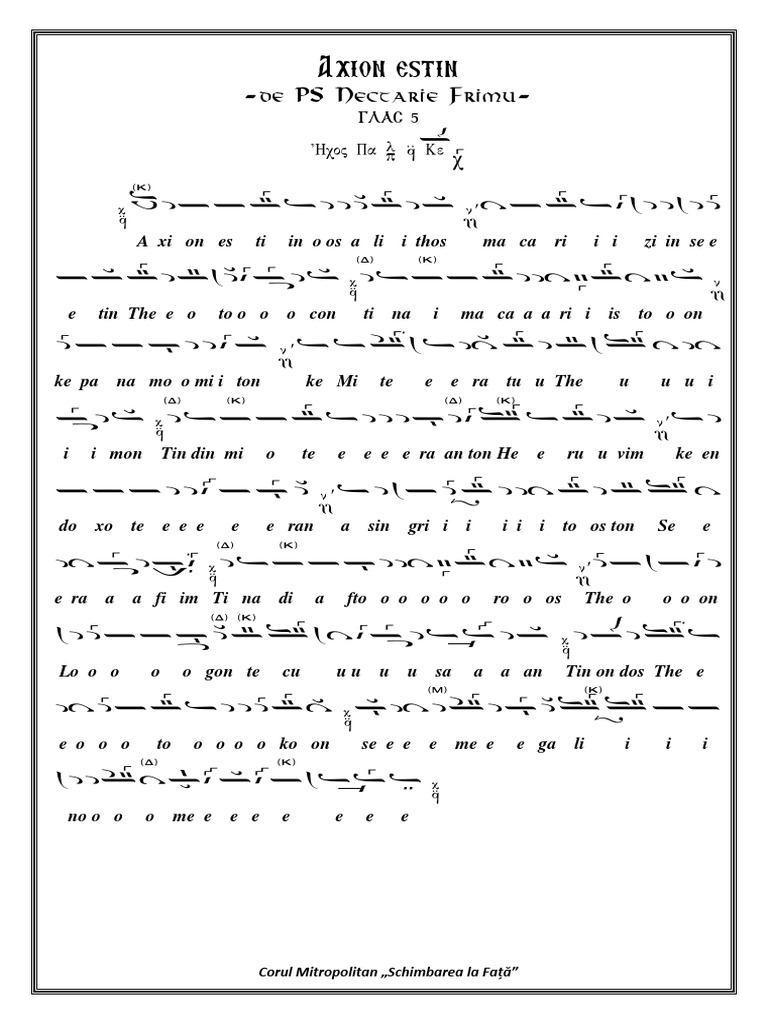 Axion estin
-de PS Nectarie Frimu-
ГЛАС 5
Ἦχος Πα λ π q̈ Κε χ
(K)
A xi on es ti in o os a li i thos ma ca ri i i zi in se e
(Δ) (K)
e tin The e o to o o o o con ti na i ma ca a a ri i is to o on
ke pa na mo o mi i ton ke Mi te e e ra tu u The u u u i
(Δ) (K) (Δ) (K)
i i mon Tin din mi o te e e e e ra an ton He e ru u vim ke en
do xo te e e e e e ran a sin gri i i i i i to os ton Se e
(Δ) (K)
e ra a a fi im Ti na di a fto o o o o o ro o os The o o o on
(Δ) (K)
Lo o o o o gon te cu u u u u sa a a an Tin on dos The e
(M) (K)
e o o o to o o o o ko on se e e e me e e ga li i i i
(Δ) (K)
no o o o me e e e e e e e
Corul Mitropolitan „Schimbarea la Față”